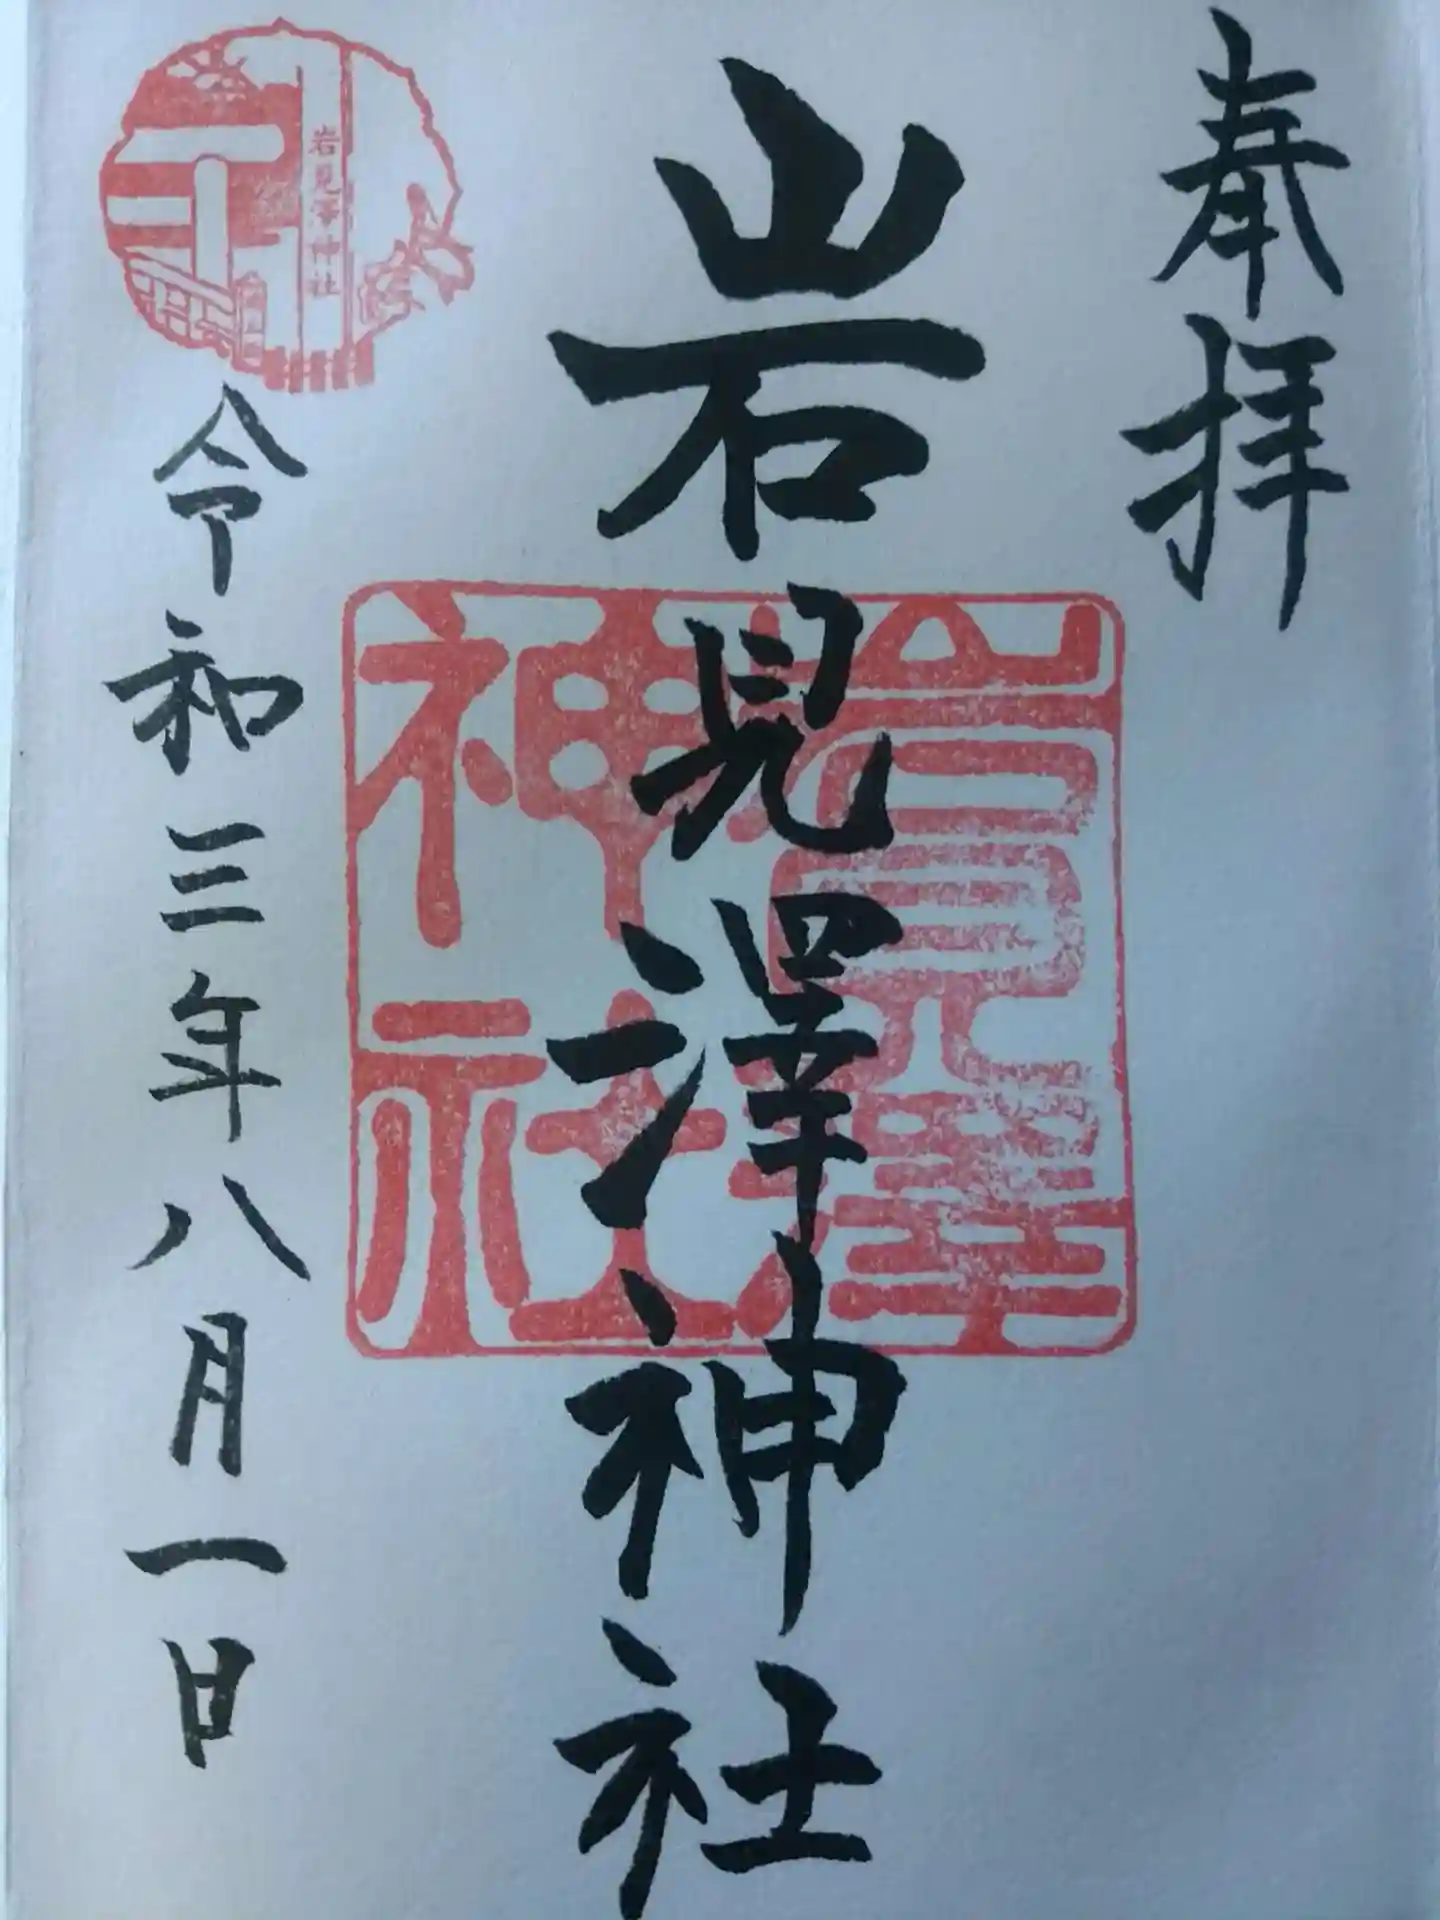 奉拝
岩見澤神社
岩見澤
神社
岩見澤神社
令和三年八月一日